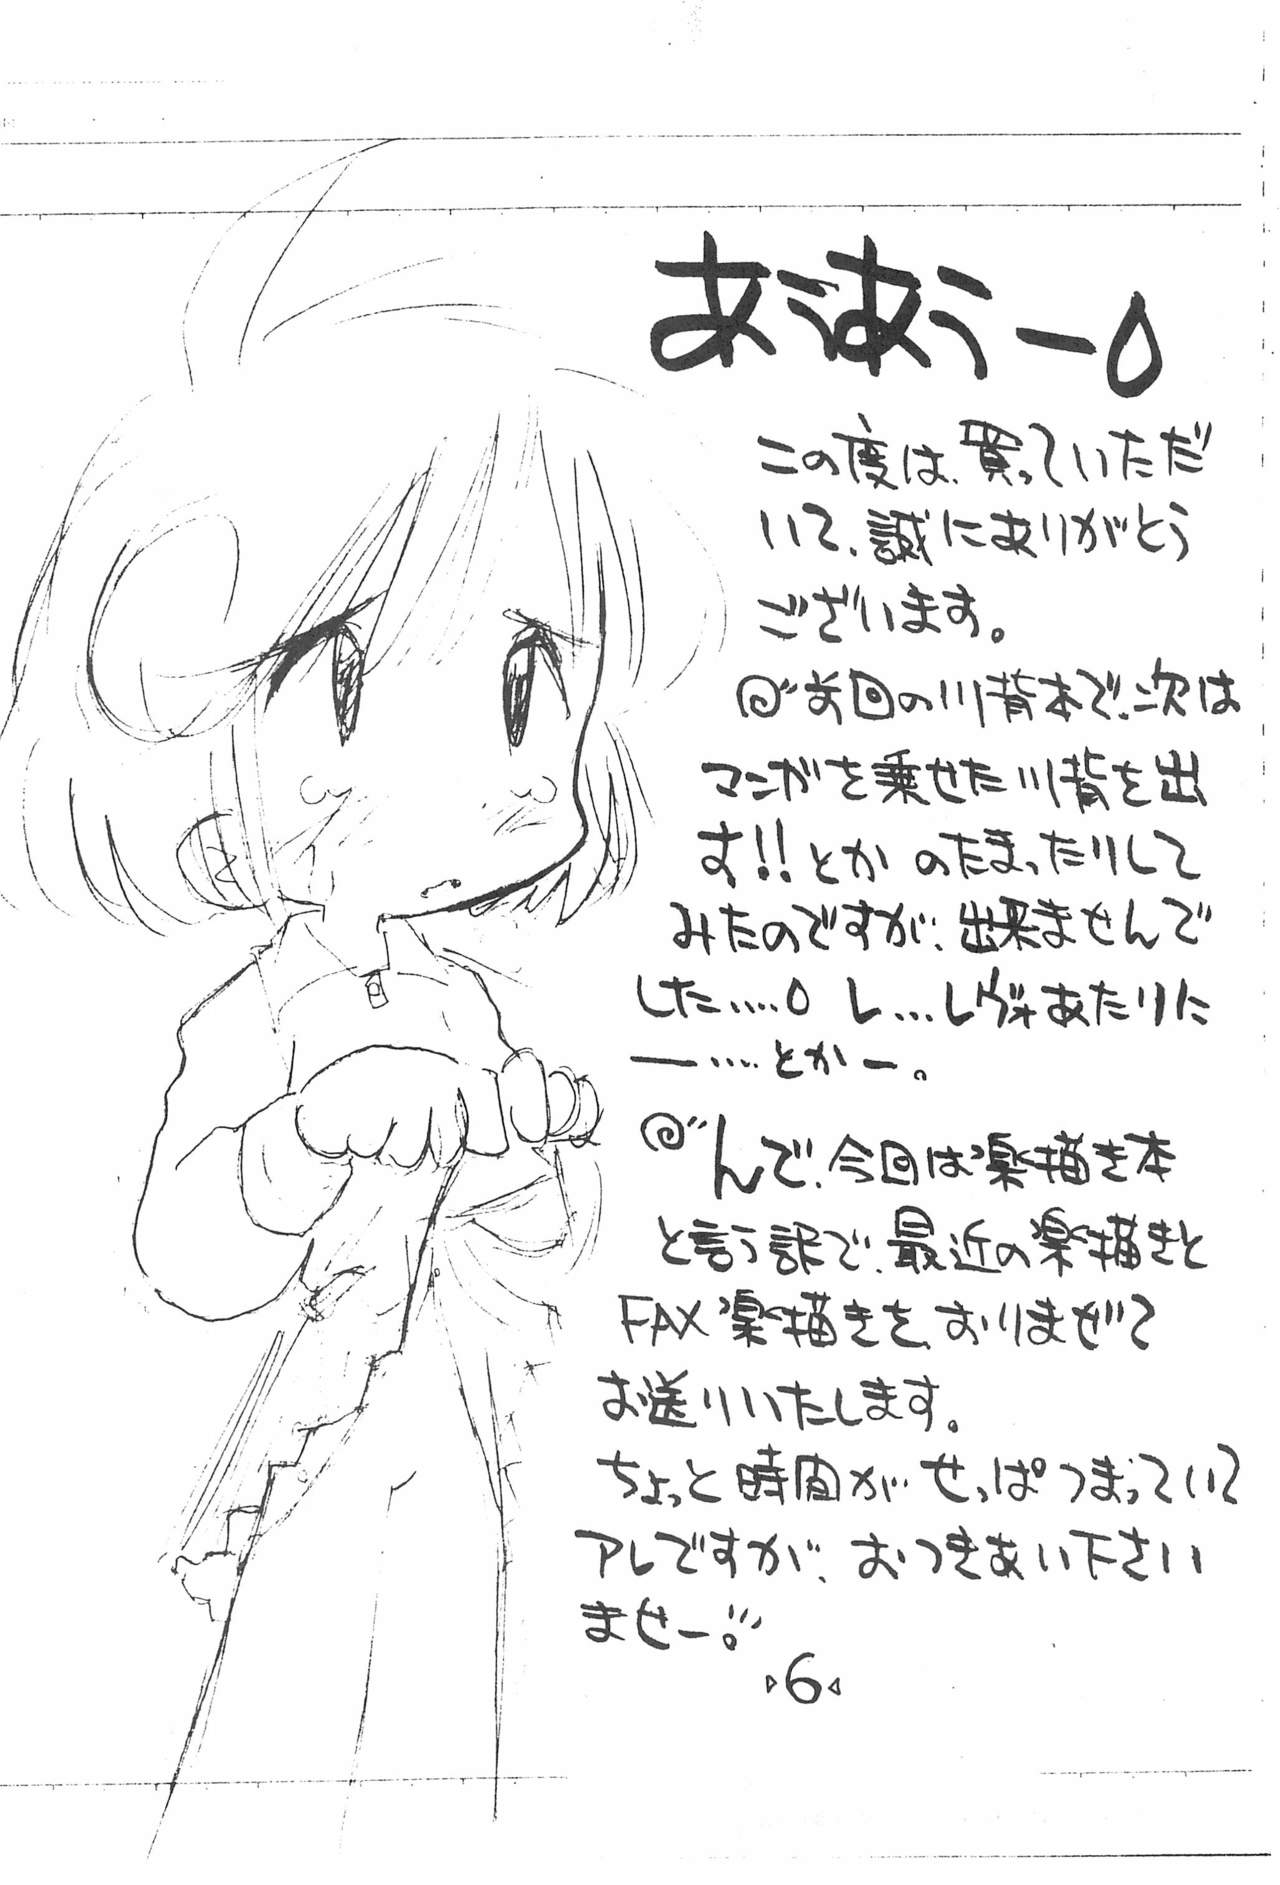 あうあうー
この度は、買っていただ
いて、誠にありがとう
ございます。
@"前回の川背本で、次は
マンガを乗せた川背を出
す!!とか のたまったりして
みたのですが、出来ませんで
した‥‥ レ…レヴォあたりに
ー‥‥とかー。
@"んで、今回は楽描き本
と言う訳で、最近の楽描きと
FAX楽描きを、おりまぜて
お送りいたします。
ちょっと時間がせっぱつまっていて
アレですが、おつきあい下さい
ませー。
▷6◁